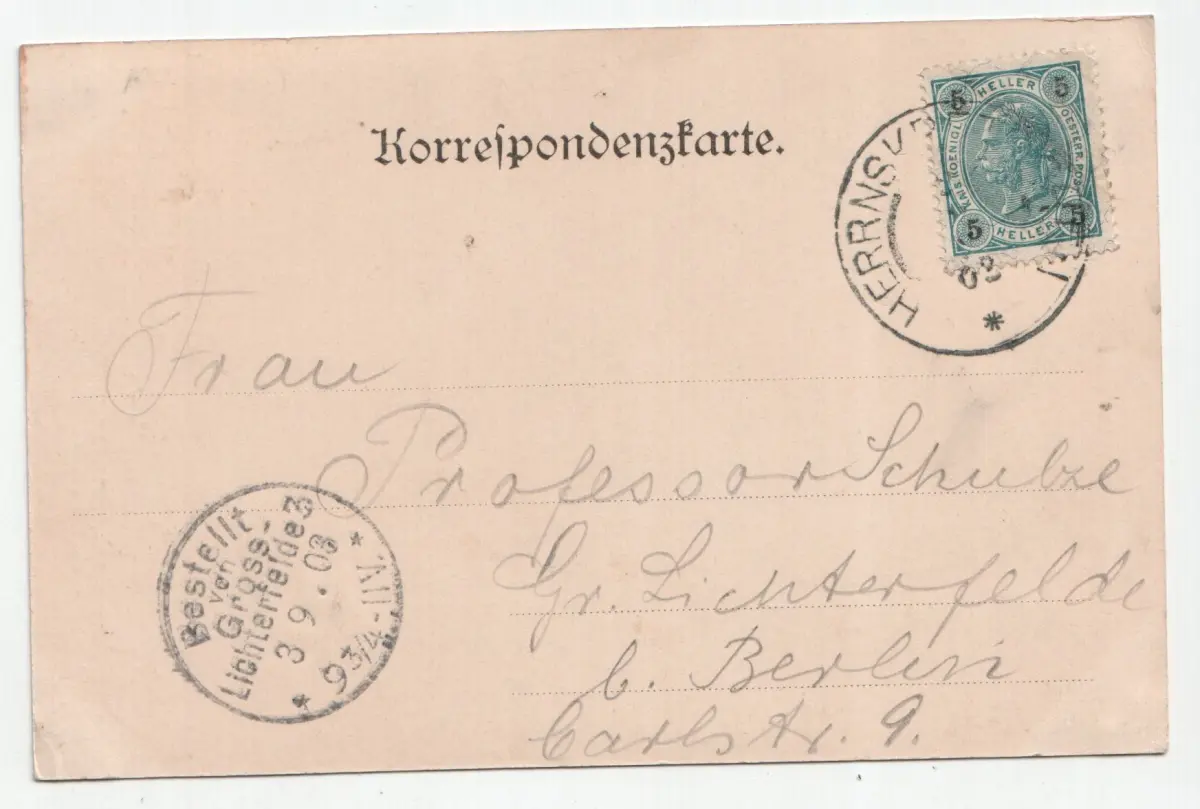 Korreſpondenzkarte.
5 HELLER 5
KAIS. KOENIGL. OESTERR. POST
5 HELLER 5
HERRNSK
03
Frau
Professor Schulze
Gr. Lichterfelde
b. Berlin
Carlstr. 9.
Bestellt
von
Gross-
Lichterfelde 3
3 9 . 03
* 9 3/4 - 11V. *